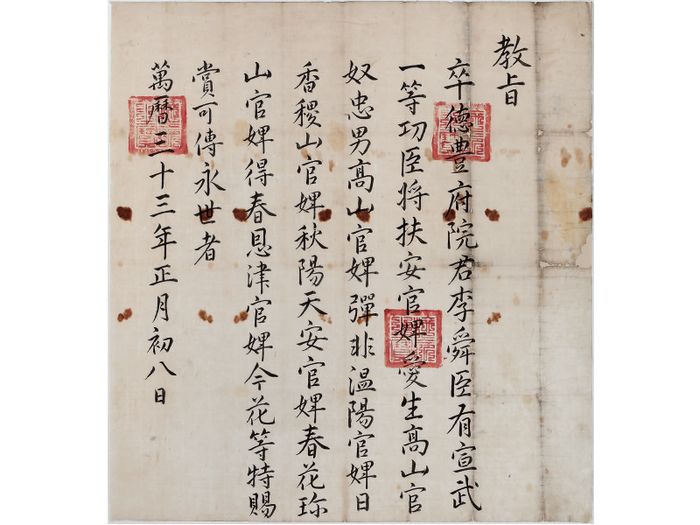 教旨
卒德豊府院君李舜臣有宣武
一等功臣將扶安官婢愛生高山官
奴忠男高山官婢彈非溫陽官婢日
香稷山官婢秋陽天安官婢春花珎
山官婢得春恩津官婢今花等特賜
賞可傳永世者
萬曆三十三年正月初八日